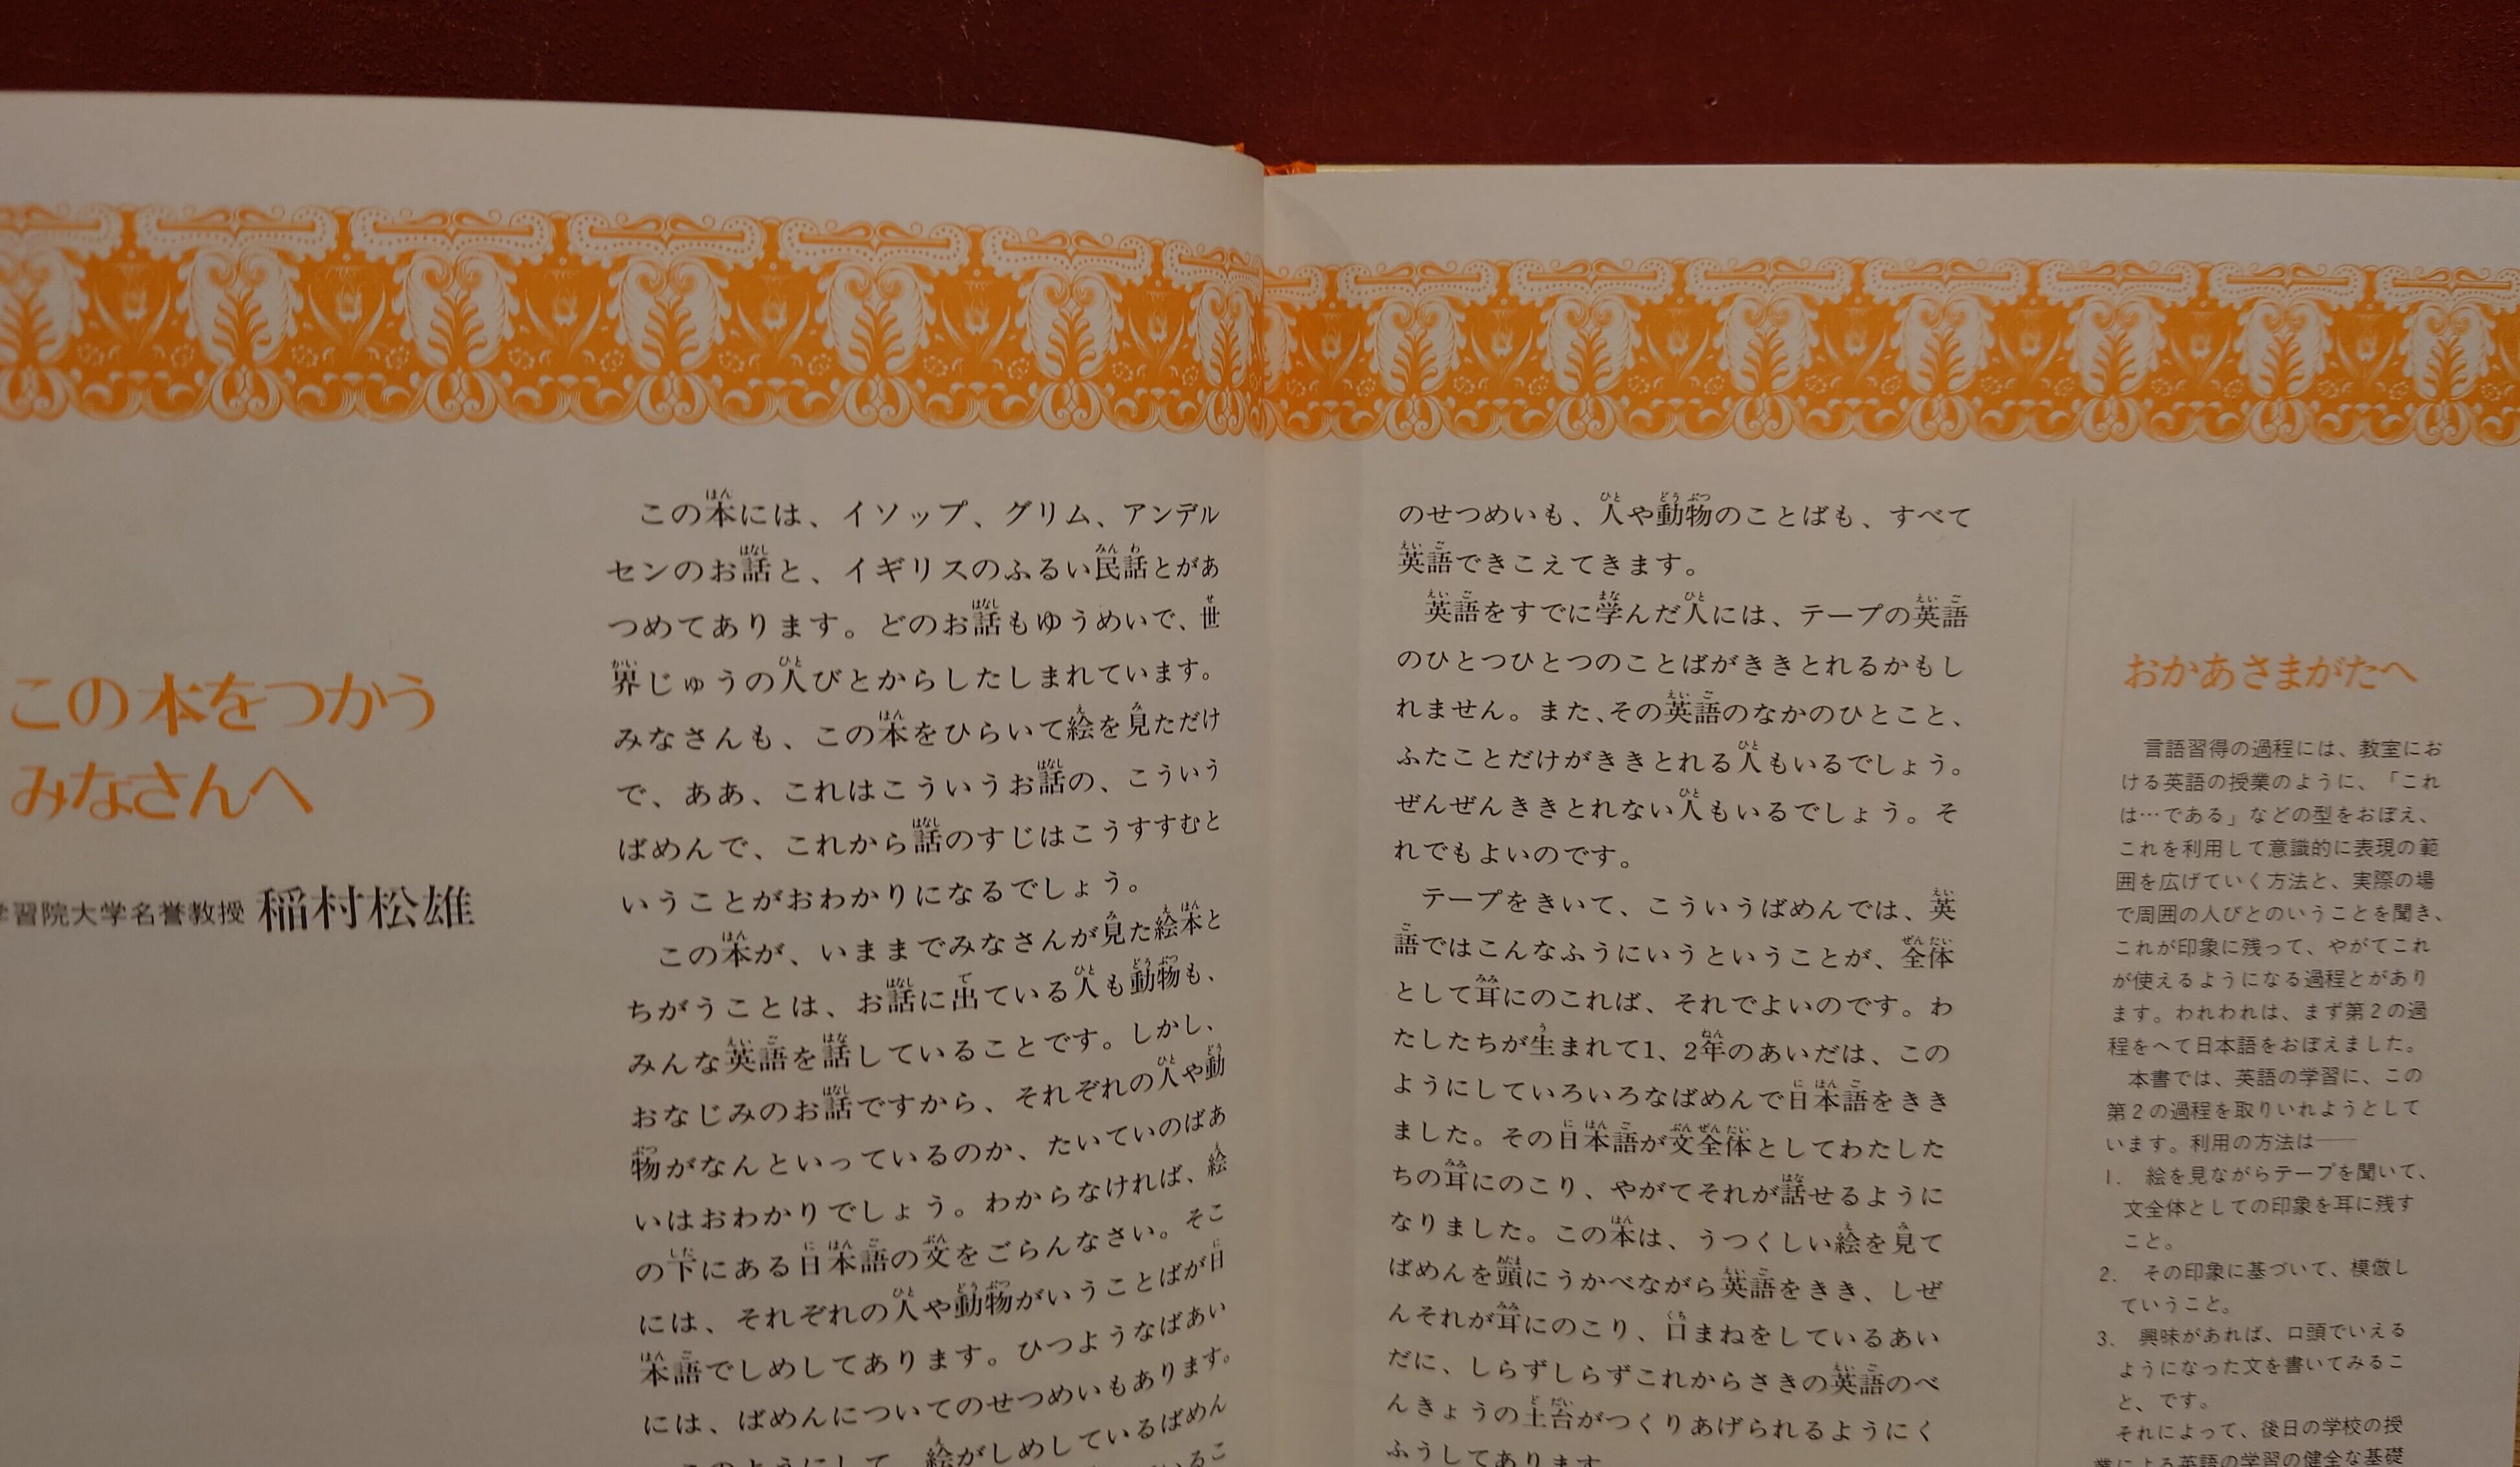 この本をつかう
みなさんへ
学習院大学名誉教授 稲村松雄
この本には、イソップ、グリム、アンデル
センのお話と、イギリスのふるい民話とがあ
つめてあります。どのお話もゆうめいで、世
界じゅうの人びとからしたしまれています。
みなさんも、この本をひらいて絵を見ただけ
で、ああ、これはこういうお話の、こういう
ばめんで、これから話のすじはこうすすむと
いうことがおわかりになるでしょう。
この本が、いままでみなさんが見た絵本と
ちがうことは、お話に出ている人も動物も、
みんな英語を話していることです。しかし、
おなじみのお話ですから、それぞれの人や動
物がなんといっているのか、たいていのばあ
いはおわかりでしょう。わからなければ、絵
の下にある日本語の文をごらんなさい。そこ
には、それぞれの人や動物がいうことばが日
本語でしめしてあります。ひつようなばあい
には、ばめんについてのせつめいもあります。
このようにして、絵がしめしているばめん
のせつめいも、人や動物のことばも、すべて
英語できこえてきます。
英語をすでに学んだ人には、テープの英語
のひとつひとつのことばがききとれるかもし
れません。また、その英語のなかのひとこと、
ふたことだけがききとれる人もいるでしょう。
ぜんぜんききとれない人もいるでしょう。そ
れでもよいのです。
テープをきいて、こういうばめんでは、英
語ではこんなふうにいうということが、全体
として耳にのこれば、それでよいのです。わ
たしたちが生まれて1、2年のあいだは、この
ようにしていろいろなばめんで日本語をきき
ました。その日本語が文全体としてわたした
ちの耳にのこり、やがてそれが話せるように
なりました。この本は、うつくしい絵を見て
ばめんを頭にうかべながら英語をきき、しぜ
んそれが耳にのこり、口まねをしているあい
だに、しらずしらずこれからさきの英語のべ
んきょうの土台がつくりあげられるようにく
ふうしてあります
おかあさまがたへ
言語習得の過程には、教室にお
ける英語の授業のように、「これ
は…である」などの型をおぼえ、
これを利用して意識的に表現の範
囲を広げていく方法と、実際の場
で周囲の人びとのいうことを聞き、
これが印象に残って、やがてこれ
が使えるようになる過程とがあり
ます。われわれは、まず第2の過
程をへて日本語をおぼえました。
本書では、英語の学習に、この
第2の過程を取りいれようとして
います。利用の方法は――
1. 絵を見ながらテープを聞いて、
文全体としての印象を耳に残す
こと。
2. その印象に基づいて、模倣し
ていうこと。
3. 興味があれば、口頭でいえる
ようになった文を書いてみるこ
と、です。
それによって、後日の学校の授
業による英語の学習の健全な基礎